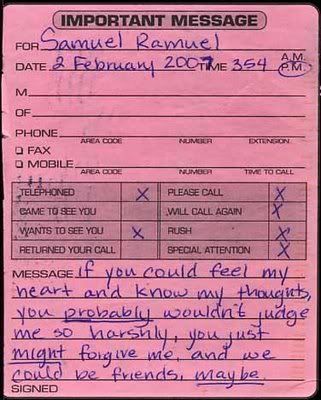 IMPORTANT MESSAGE
FOR Samuel Ramuel
DATE 2 February 2007 TIME 354 A.M. P.M.
M
OF
PHONE
AREA CODE NUMBER EXTENSION
FAX
MOBILE
AREA CODE NUMBER TIME TO CALL
TELEPHONED X PLEASE CALL X
CAME TO SEE YOU WILL CALL AGAIN X
WANTS TO SEE YOU X RUSH X
RETURNED YOUR CALL SPECIAL ATTENTION X
MESSAGE if you could feel my
heart and know my thoughts,
you probably wouldn't judge
me so harshly, you just
might forgive me, and we
could be friends, maybe
SIGNED